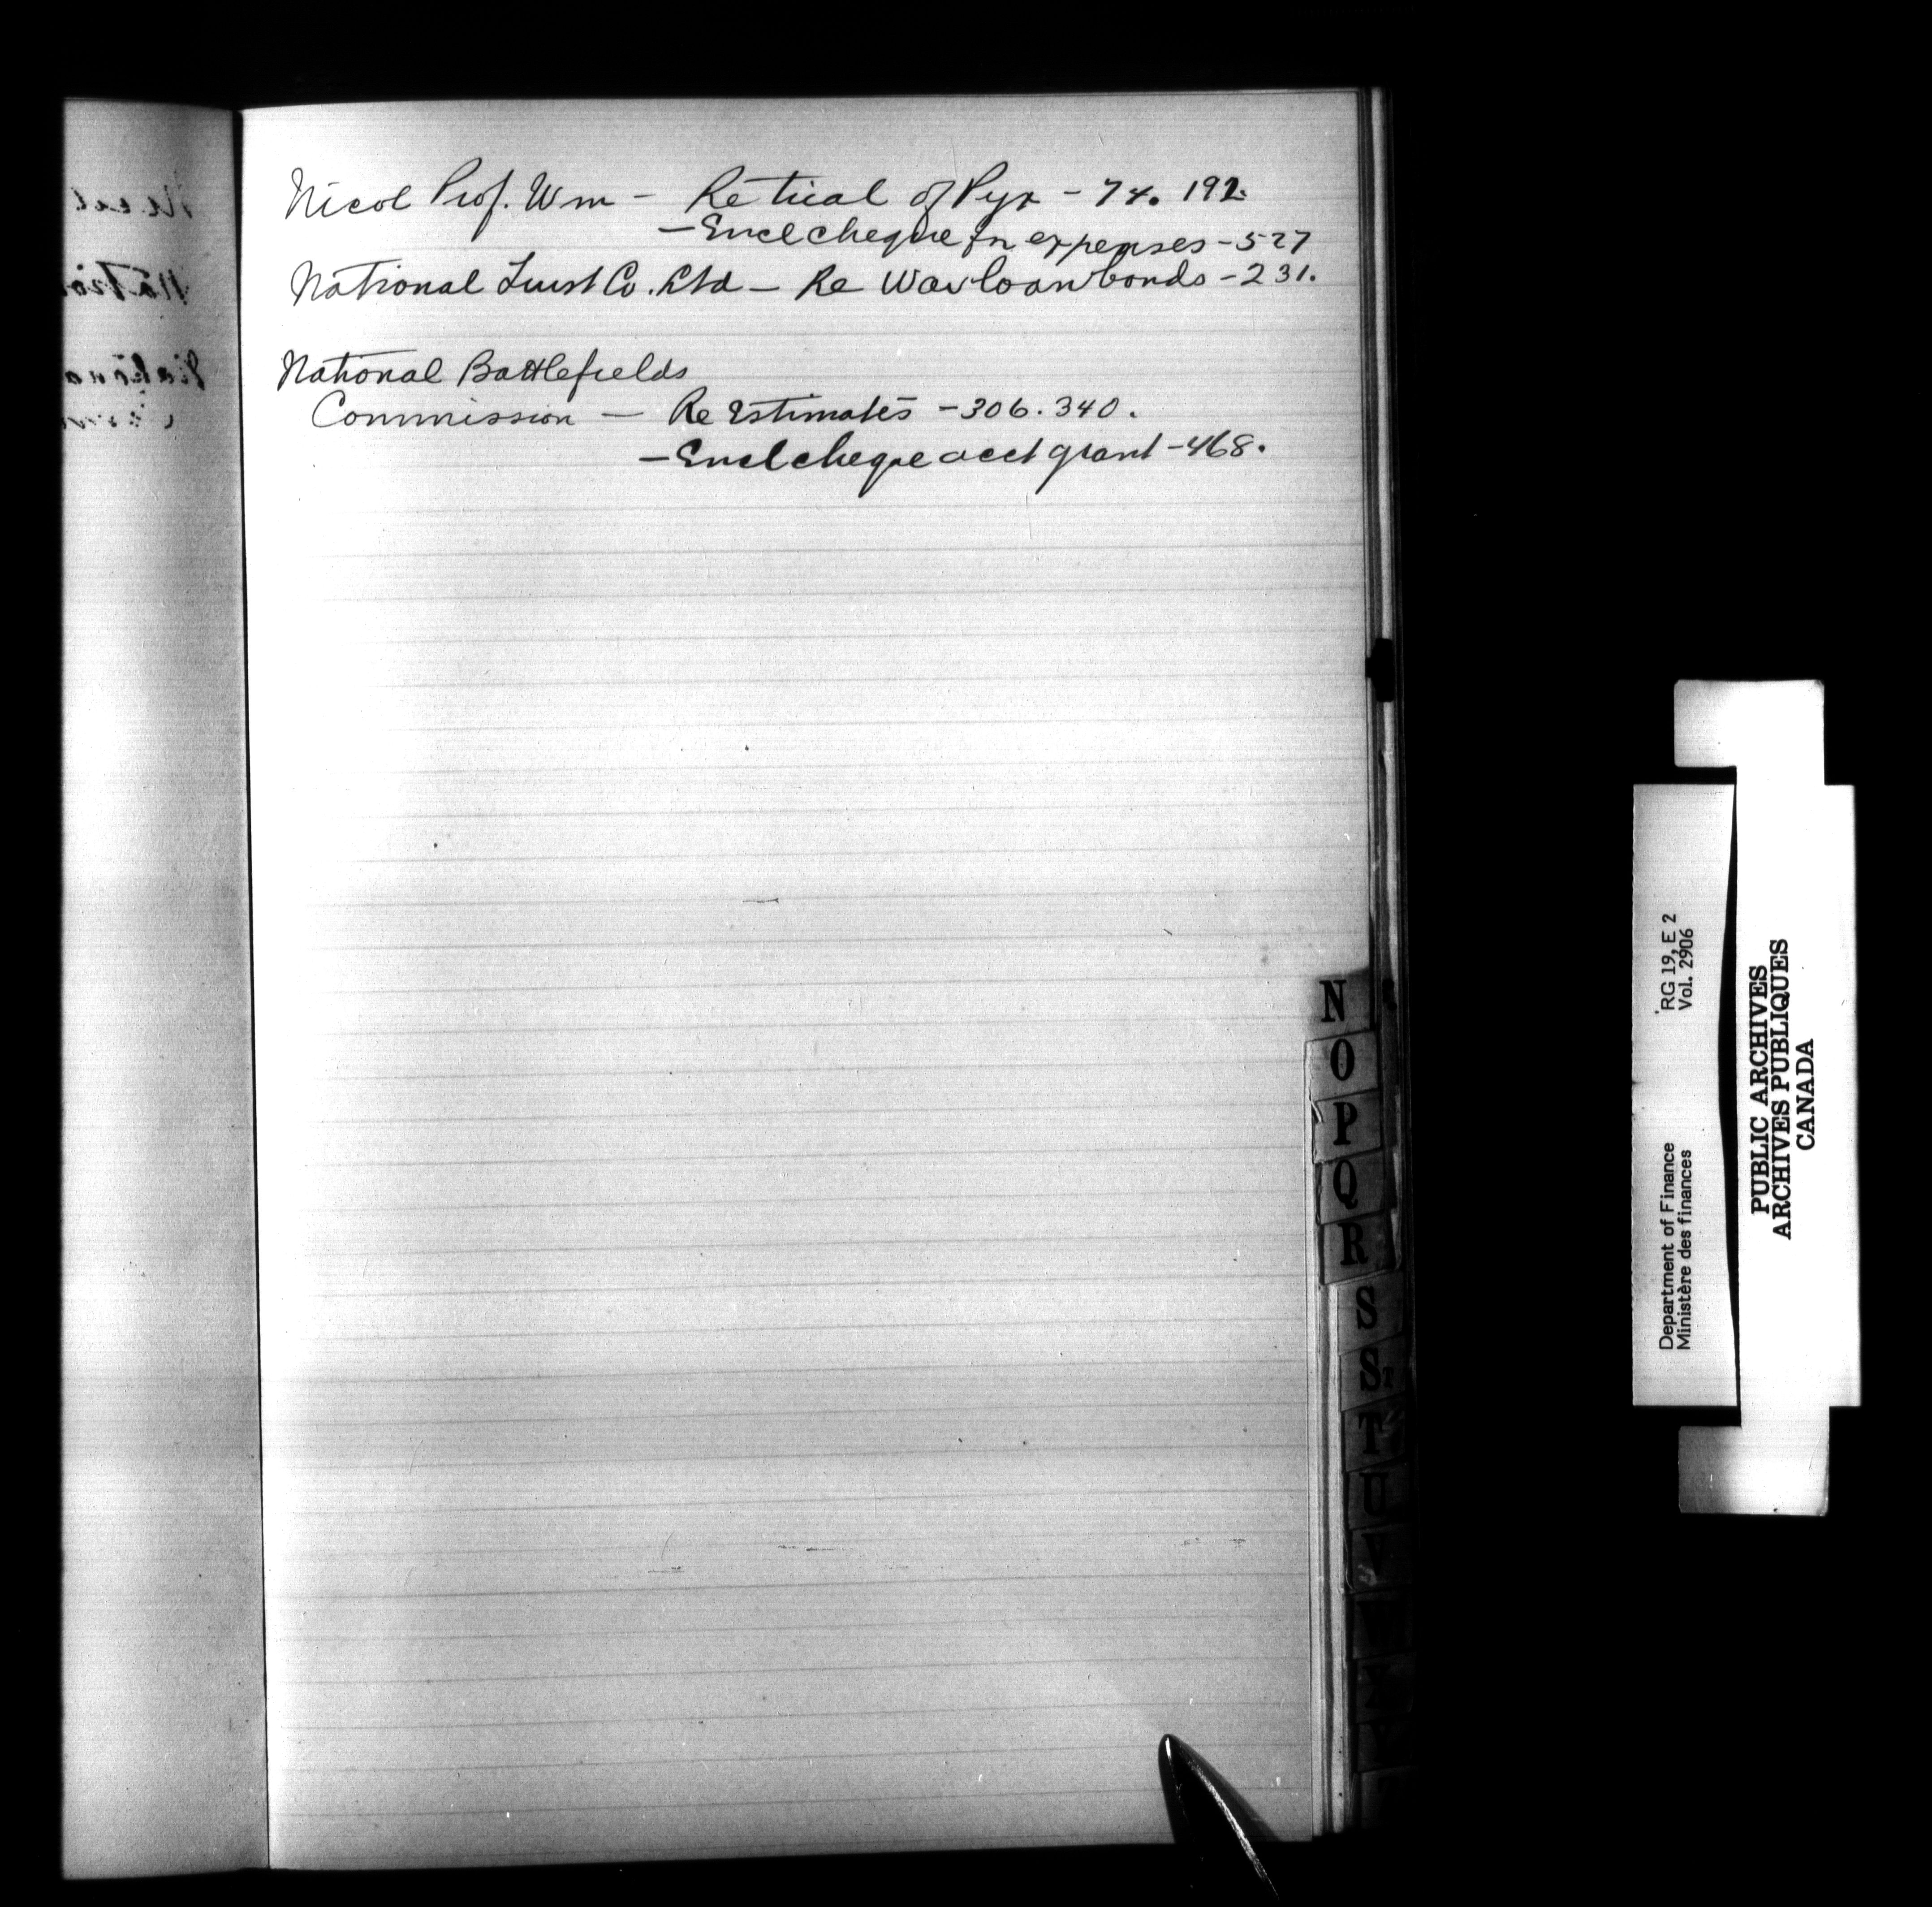 Nicol Prof. Wm — Re trial of Pyx — 74. 192.
— Encl cheque for expenses — 527
National Trust Co. Ltd — Re War loan bonds — 231.
National Battlefields
Commission — Re Estimates — 306. 340.
— Encl cheque acct grant — 468.
N
O
P
Q
R
S
S
T
U
V
W
Department of Finance RG 19, E 2
Ministère des finances Vol. 2906
PUBLIC ARCHIVES
ARCHIVES PUBLIQUES
CANADA